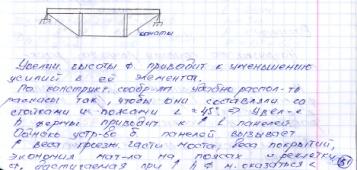 канаты
Увелич. высоты ф. приводит к уменьшению
усилий в её элемента.
По конструкт. сообр-ям удобно распол-ть
раскосы так, чтобы они составляли со
стойками и поясами ∠ = 45° ⇒ Увел-е
h фермы приводит к ↑ l панелей.
Однако устр-во б панелей вызывает
↑ веса проезж. части моста, веса покрытий,
экономия мат-ла на поясах и решетки
при ↑ h ф. м. сказаться